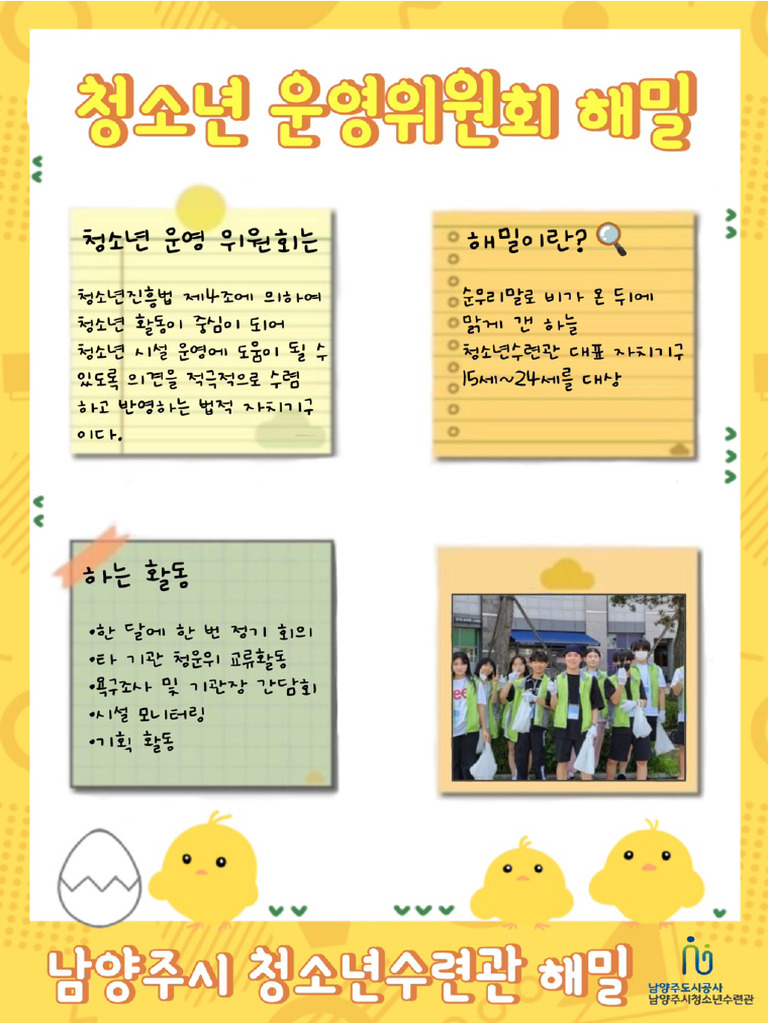 청소년 운영위원회 해밀
청소년 운영 위원회는
청소년진흥법 제4조에 의하여
청소년 활동이 중심이 되어
청소년 시설 운영에 도움이 될 수
있도록 의견을 적극적으로 수렴
하고 반영하는 법적 자치기구
이다.
해밀이란?
순우리말로 비가 온 뒤에
맑게 갠 하늘
청소년수련관 대표 자치기구
15세~24세를 대상
하는 활동
•한 달에 한 번 정기 회의
•타 기관 청운위 교류활동
•욕구조사 및 기관장 간담회
•시설 모니터링
•기획 활동
남양주시 청소년수련관 해밀
남양주도시공사
남양주시청소년수련관